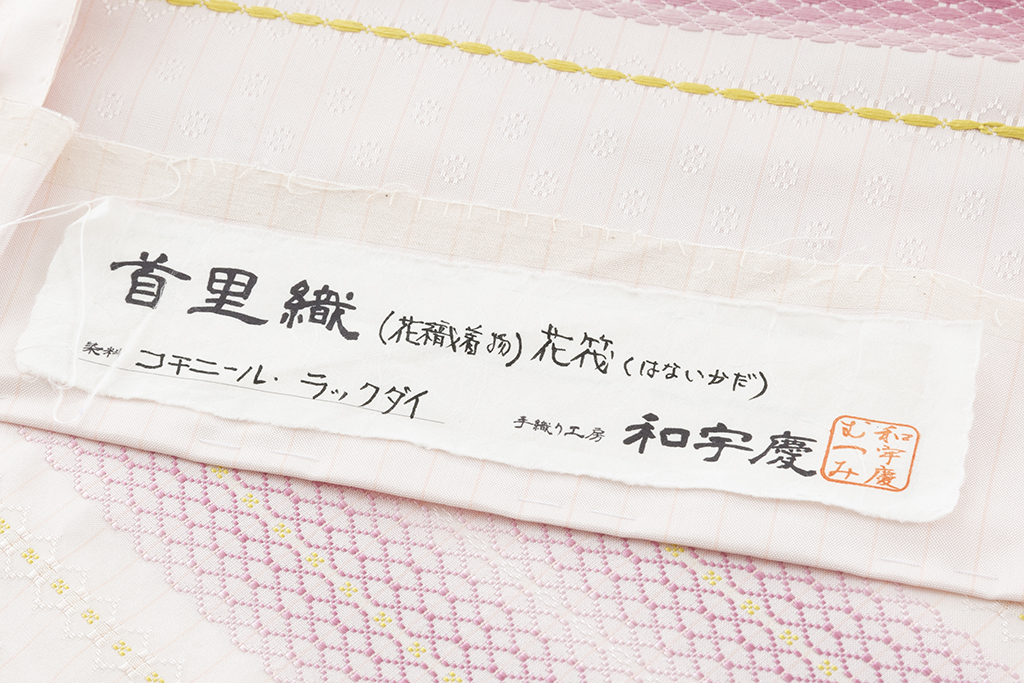 首里織 (花織着物) 花筏 (はないかだ)
染料 コチニール・ラックダイ
手織り工房 和宇慶
和宇慶
むつみ